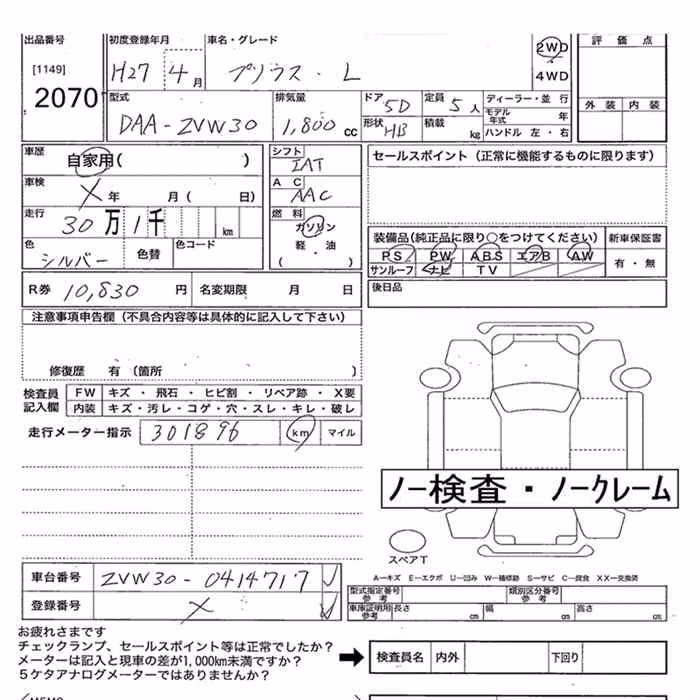 出品番号 初度登録年月 車名・グレード 2WD 4WD 評価点
[1149] H27年 4月 プリウス・L
2070 型式 排気量 ドア 5D 定員 5人 ディーラー・並行 外装 内装
DAA-ZVW30 1,800cc 形状 HB 積載 kg モデル年式 年
ハンドル 左・右
車歴 自家用( ) シフト IAT セールスポイント (正常に機能するものに限ります)
車検 X 年 月( 日) AC AAC
走行 30万1千 km 燃料 ガソリン 軽・油 ( ) 装備品(純正品に限り○をつけてください) 新車保証書
色 シルバー 色替 色コード PS PW ABS エアB AW 有・無
サンルーフ ナビ TV
R券 10,830円 名変期限 月 日 後日品
注意事項申告欄 (不具合内容等は具体的に記入して下さい)
修復歴 有 (箇所 )
検査員記入欄 FW キズ・飛石・ヒビ割・リペア跡・X要
内装 キズ・汚レ・コゲ・穴・スレ・キレ・破レ
走行メーター指示 301896 km マイル
ノー検査・ノークレーム
スペアT
車台番号 ZVW30-0414717
A―キズ E―エクボ U―凹み W―補修跡 S―サビ C―腐食 XX―交換済
登録番号 X
型式指定番号 参考 類別区分番号 参考
車庫証明用 参考 長さ cm 幅 cm 高さ cm
お疲れさまです
チェックランプ、セールスポイント等は正常でしたか?
メーターは記入と現車の差が1,000km未満ですか?
5ケタアナログメーターではありませんか?
検査員名 内外 下回り